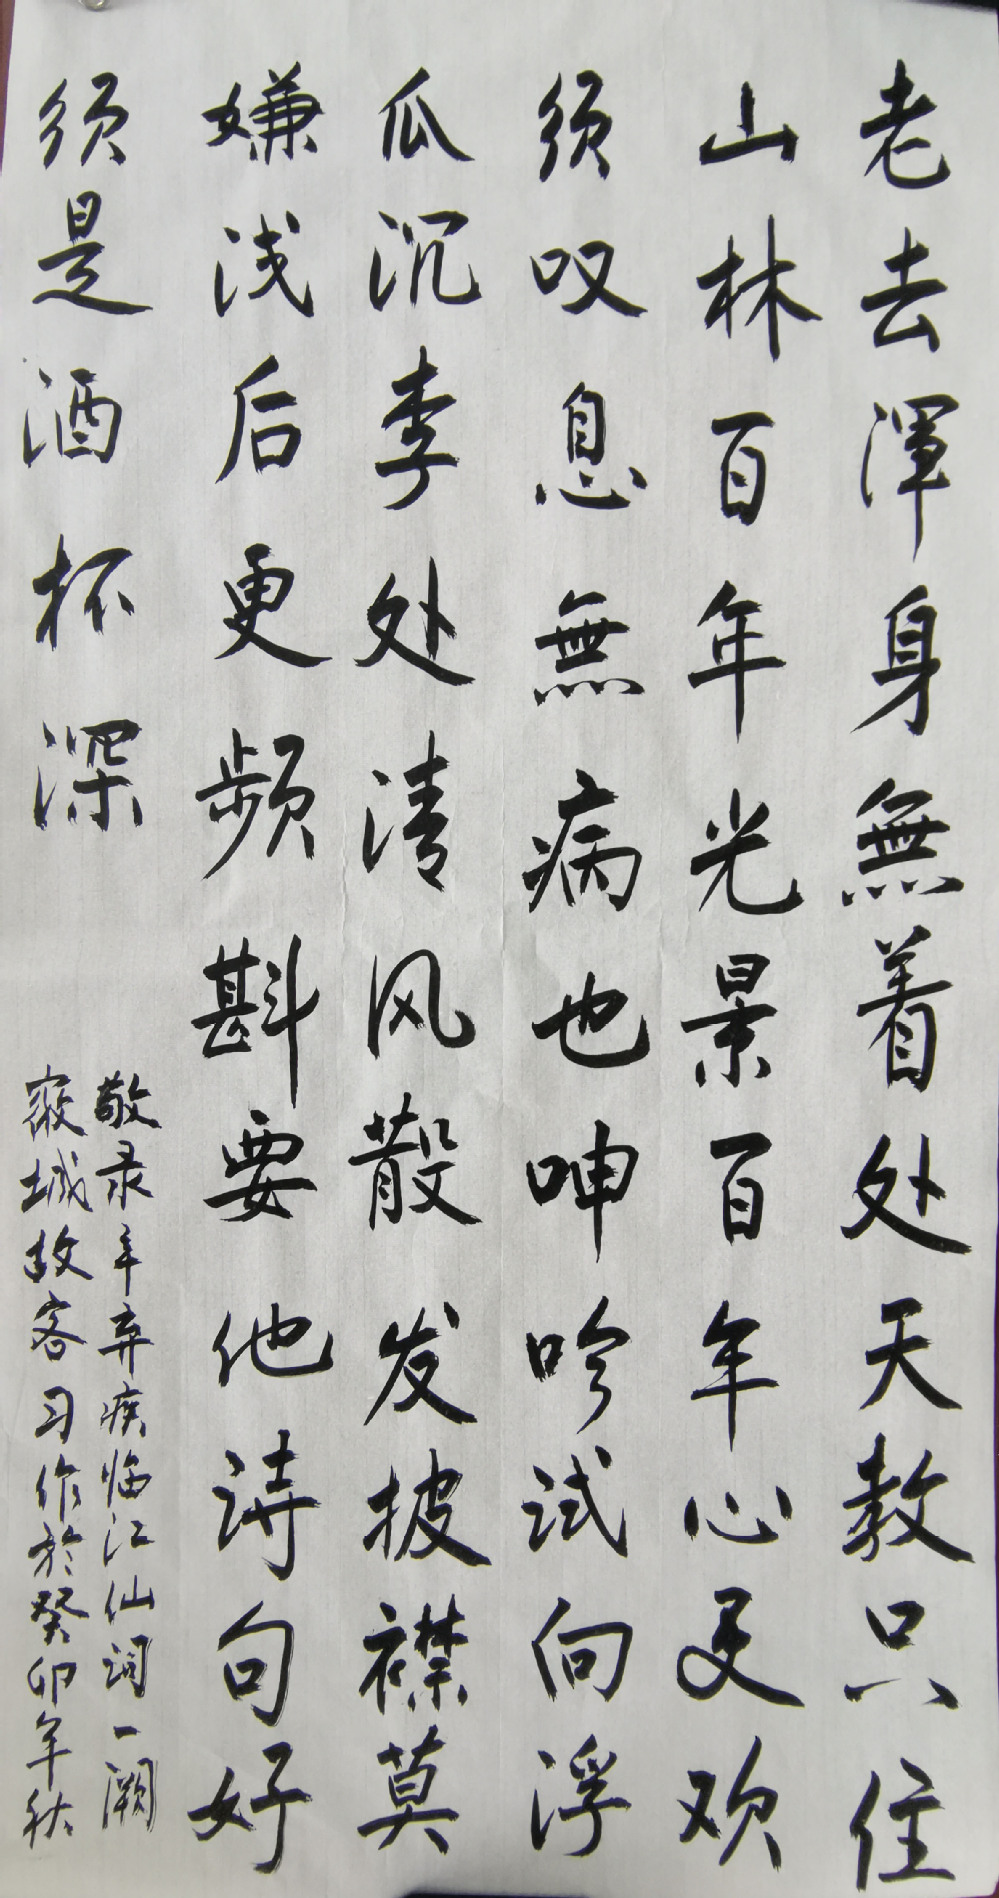 老去浑身無着处天教只住
山林百年光景百年心更欢
须叹息無病也呻吟试向浮
瓜沉李处清风散发披襟莫
嫌浅后更频斟要他诗句好
须是酒杯深
敬录辛弃疾临江仙词一阕
城故客习作於癸卯年秋